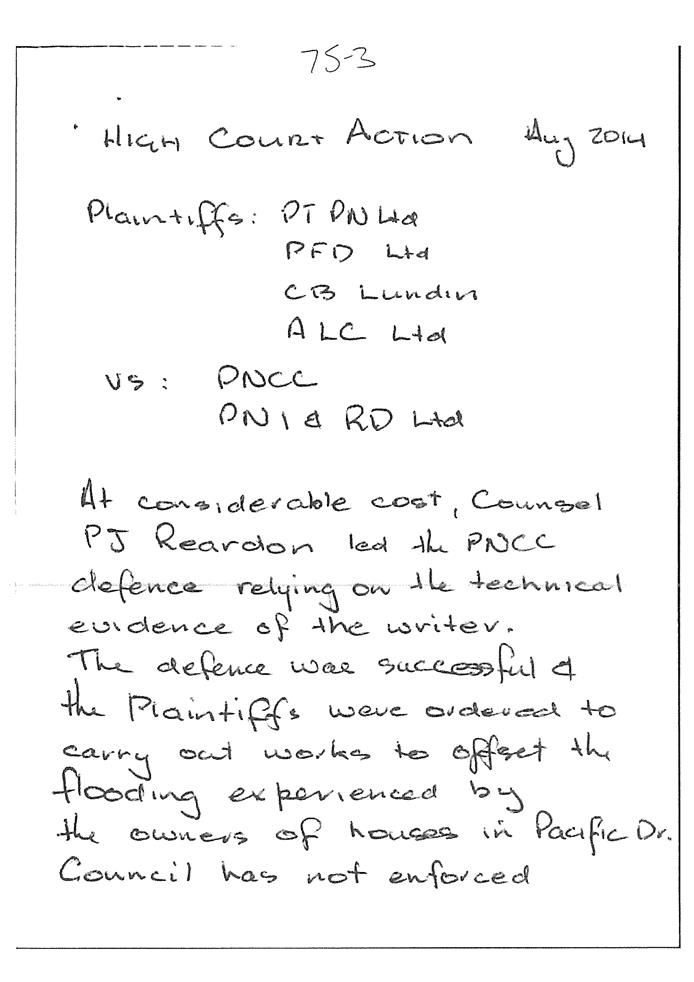 75-3
High Court Action Aug 2014
Plaintiffs: PT PN Ltd
PFD Ltd
CB Lundin
ALC Ltd
vs: PNCC
PN I & RD Ltd
At considerable cost, Counsel
PJ Reardon led the PNCC
defence relying on the technical
evidence of the writer.
The defence was successful &
the Plaintiffs were ordered to
carry out works to offset the
flooding experienced by
the owners of houses in Pacific Dr.
Council has not enforced